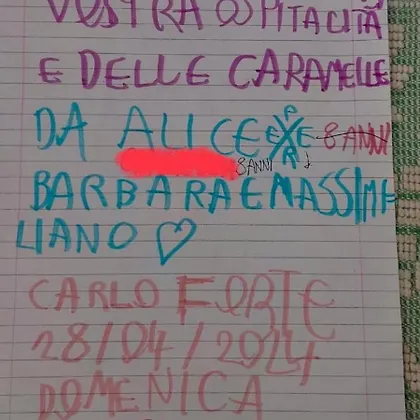 VOSTRA OSPITALITÀ
E DELLE CARAMELLE
DA ALICE E 8 ANNI
8 ANNI
BARBARA E MASSIMI
LIANO ♡
CARLO FORTE
28/04/2024
DOMENICA